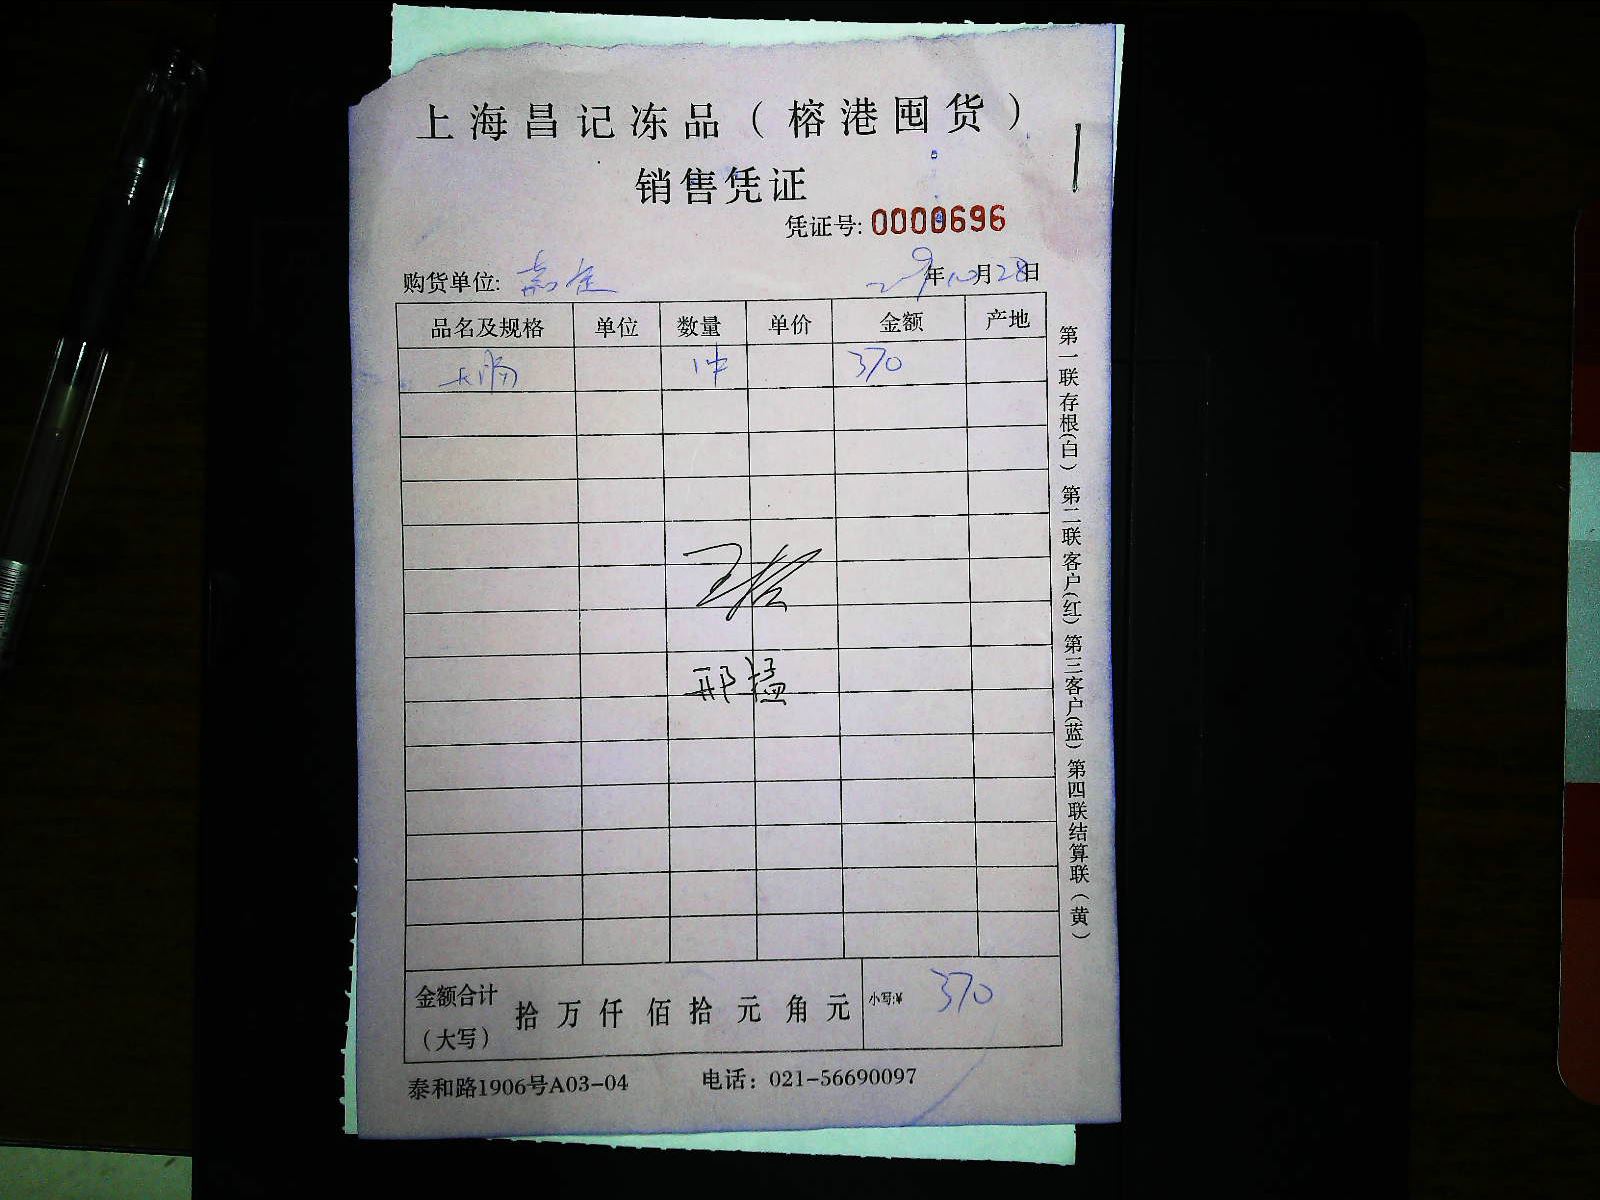 上海昌记冻品（榕港囤货）
销售凭证
凭证号: 0000696
购货单位: 嘉定 年10月28日
品名及规格 单位 数量 单价 金额 产地
大肠 1件 370
邢猛
金额合计（大写） 拾 万 仟 佰 拾 元 角 元 小写:¥ 370
泰和路1906号A03-04 电话：021-56690097
第一联存根(白) 第二联客户(红) 第三客户(蓝) 第四联结算联(黄)